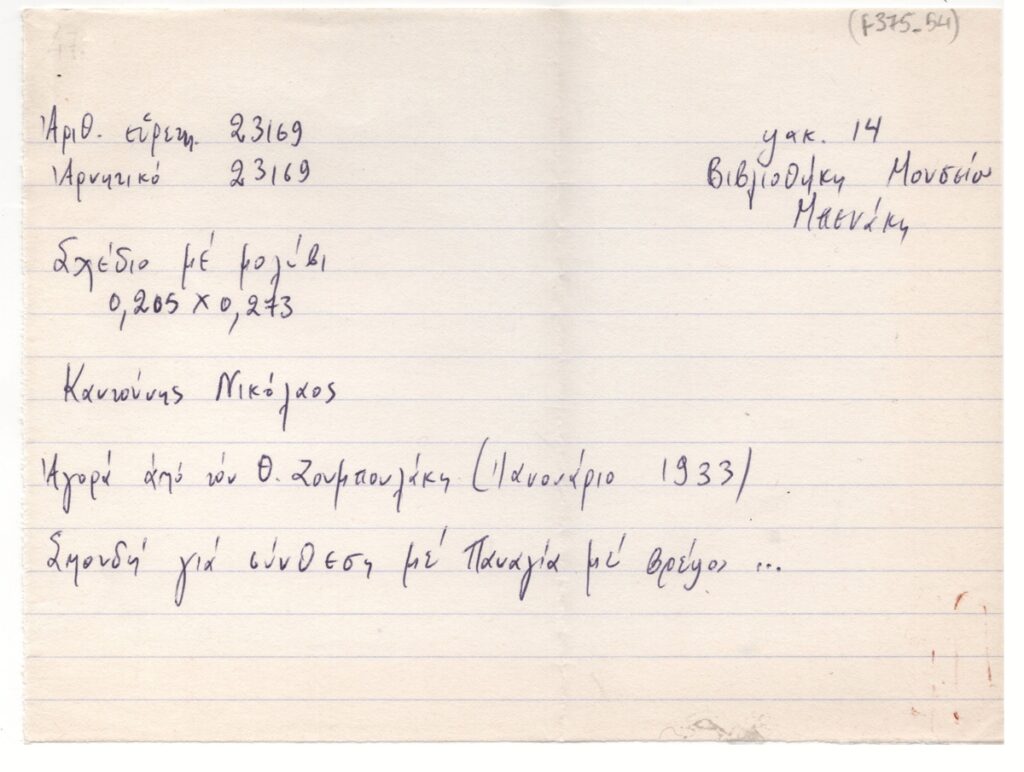 (F375_54)
Ἀριθ. εὕρετη. 23169
Ἀρνητικό 23169
φακ. 14
Βιβλιοθήκη Μουσείου
Μπενάκη
Σχέδιο μέ μολύβι
0,205 x 0,273
Καντούνης Νικόλαος
Ἀγορά ἀπό τόν Θ. Ζουμπουλάκη (Ἰανουάριο 1933)
Σπουδή γιά σύνθεση μέ Παναγία μέ βρέφος ...